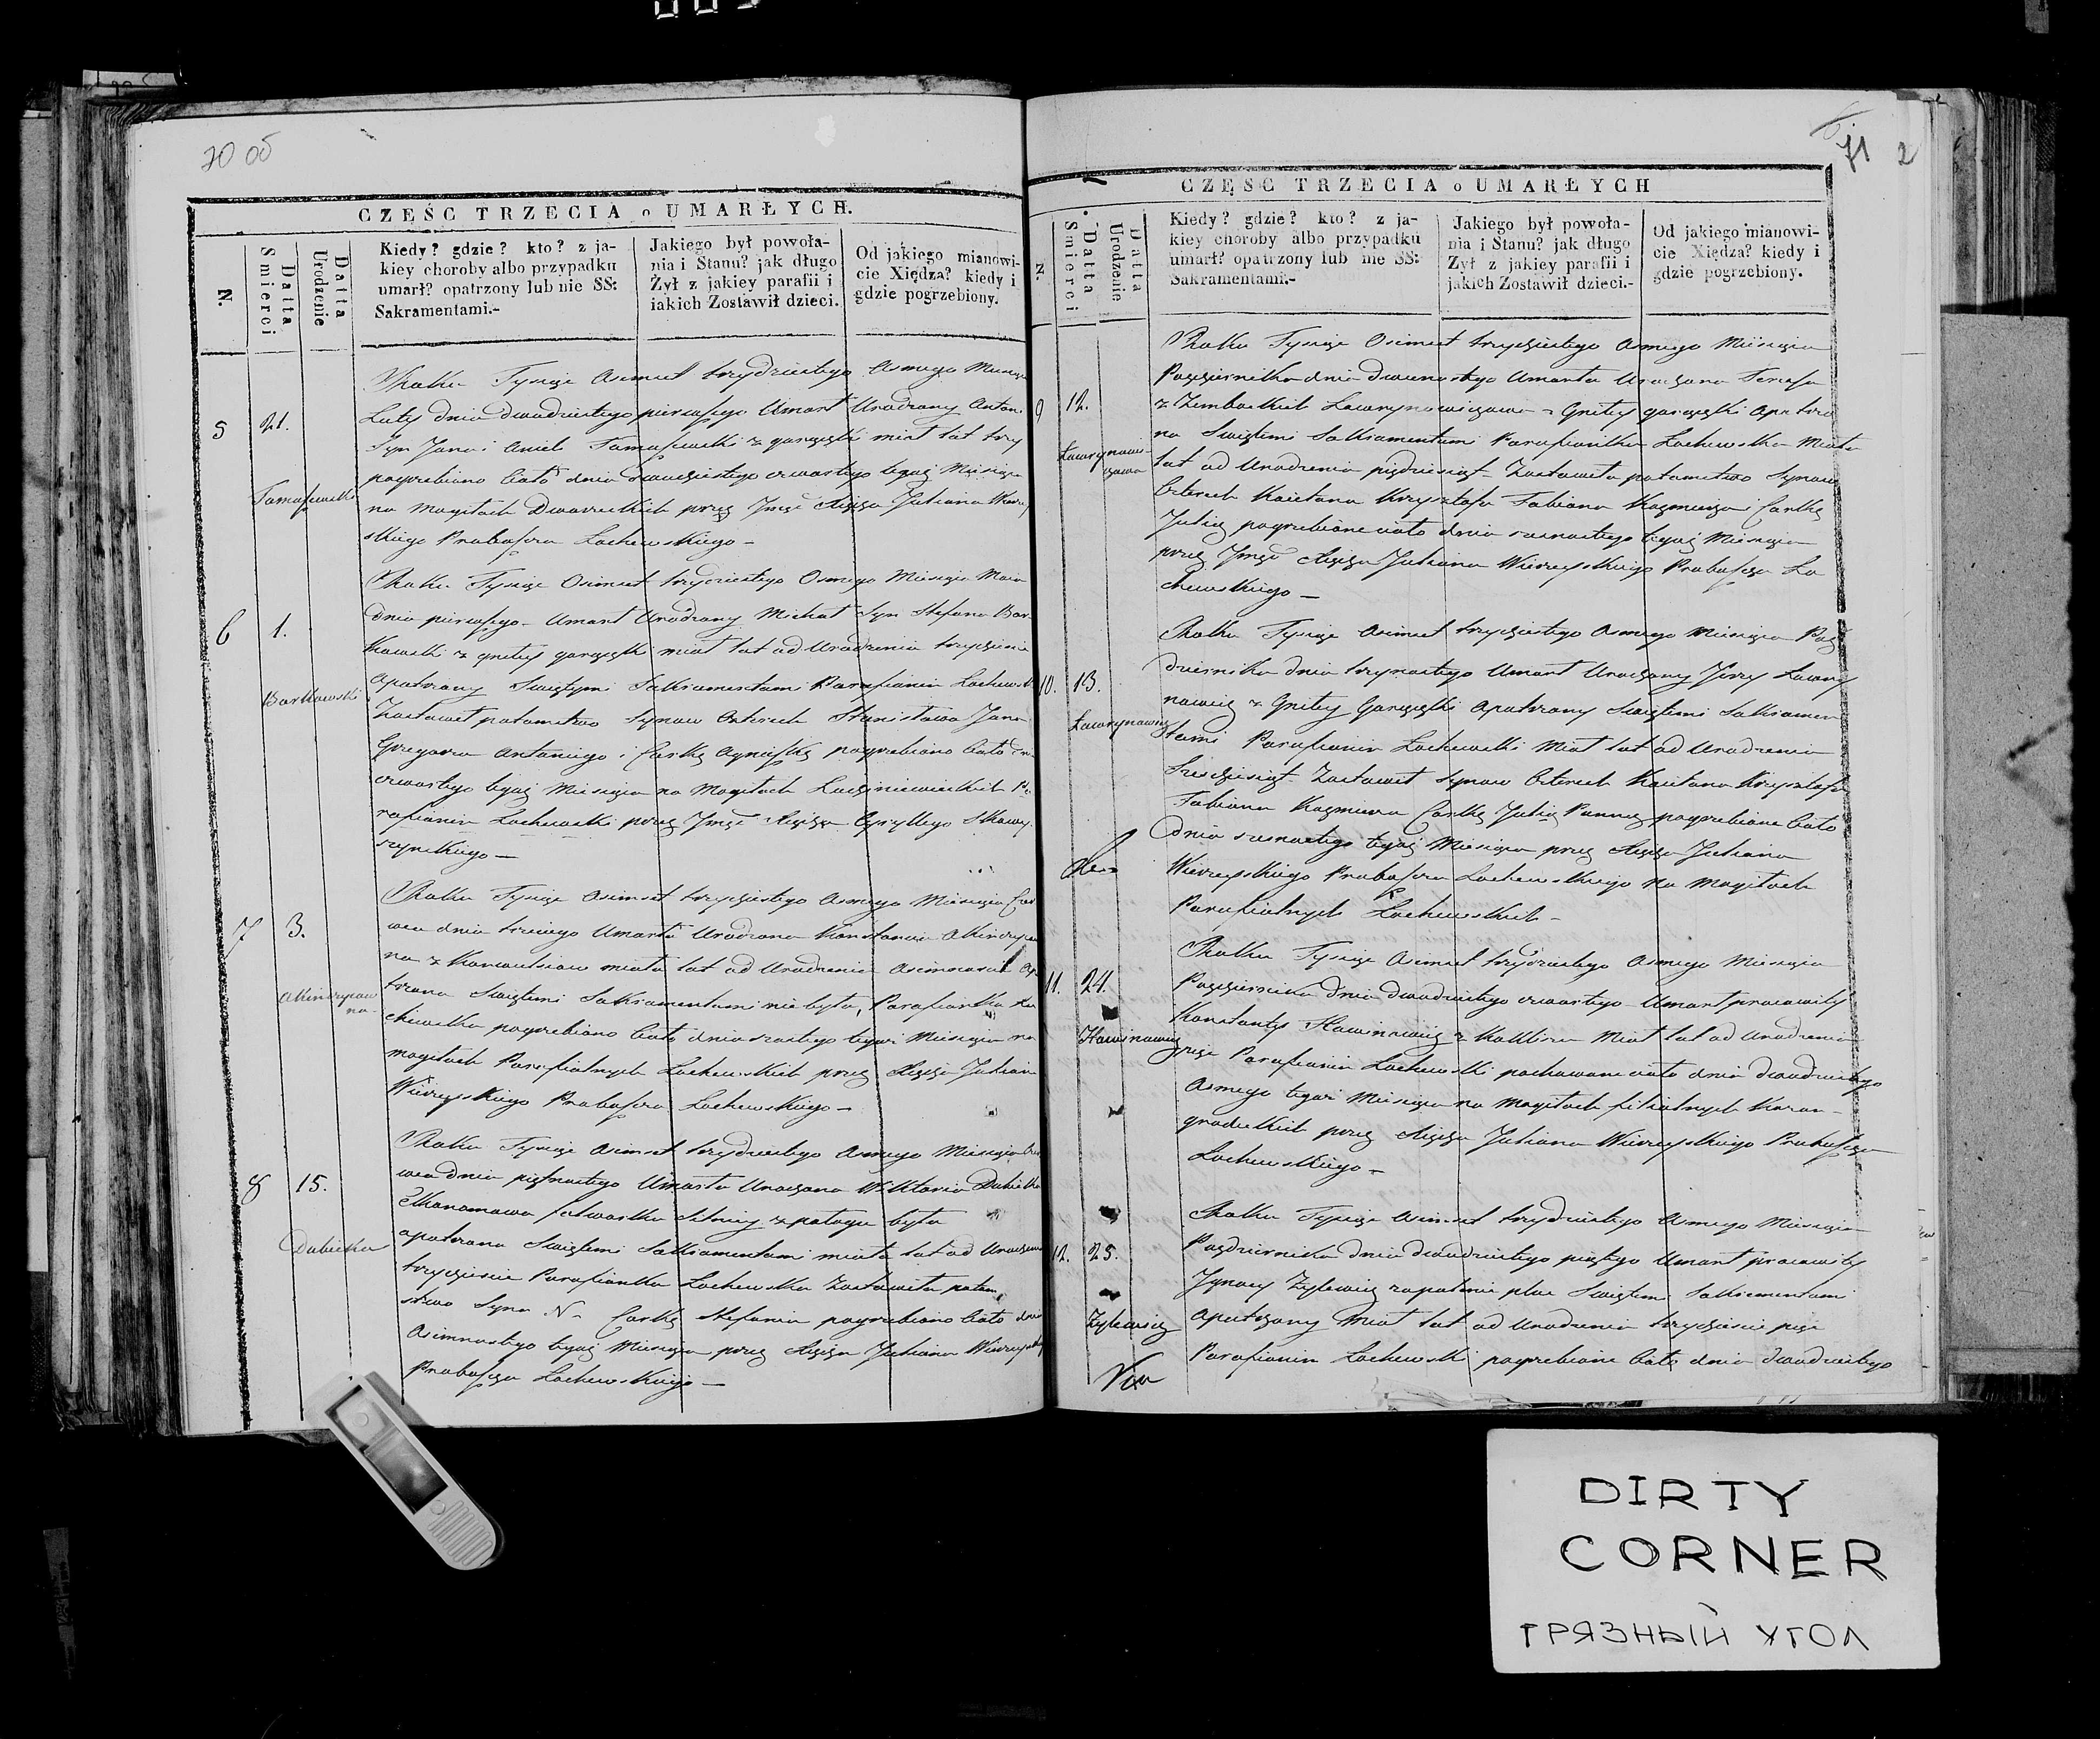 70 об
CZEŚC TRZECIA o UMARŁYCH.
N.
Datta Smierci
Datta Urodzenie
Kiedy? gdzie? kto? z ja-
kiey choroby albo przypadku
umarł? opatrzony lub nie SS:
Sakramentami.-
Jakiego był powoła-
nia i Stanu? jak długo
Żył z jakiey parafii i
iakich Zostawił dzieci.
Od jakiego mianowi-
cie Xiędza? kiedy i
gdzie pogrzebiony.
Roku Tysiąc Osimset trzydziestego Osmego Miesiąca
5 21. Luty dnia dwudziestego pierwszego Umarł Urodzony Antoni
Syn Jana i Anieli Tomaszewski z gorączki miał lat trzy
Tomaszewski
pogrzebiono ciało dnia dwudziestego czwartego tegoż Miesiąca
na Mogiłach Dworzeckich przez Jmsć Xiędza Juliana
skiego Proboszcza Lachowskiego -
Roku Tysiąc Osimset trzydziestego Osmego Miesiąca Maia
6 1. dnia pierwszego - Umarł Urodzony Michał Syn Stefana
Bartkowski
kowski z gnitey gorączki miał lat od Urodzenia trzydzieście
opatrzony Swiętymi Sakramentami Parafianin
Zostawił potomstwo Synow Czterech Stanisława Jana
Grzegorza Antoniego i Corkę Agnieszkę pogrzebiono Ciało
czwartego tegoż Miesiąca na Mogiłach
rafianin Lachowski przez Jmsć Xiędza Cyryllego
rzynskiego —
Roku Tysiąc Osimset trzydziestego Osmego Miesiąca
7 3. wca dnia trzeciego Umarła Urodzona Konstancia
Akinczycow
na
na z Konwulsiow miała lat od Urodzenia
trzona Swiętemi Sakramentami nie była, Parafianka
chowska pogrzebiono Ciało dnia szostego tegoż Miesiąca na
mogiłach Parafialnych Lachowskich przez Xiędza Juliana
Wierzyskiego Proboszcza Lachowskiego —
Roku Tysiąc Osimset trzydziestego Osmego Miesiąca
8 15. wca dnia piętnastego Umarła Urodzona Wiktoria Dubicka
Ekonomowa folwarku z połogu była
Dubicka
opatrzona Swiętemi Sakramentami miała lat od
trzydzieście Parafianka Lachowska Zostawiła
stwo Syna N- Corkę Stefanią pogrzebiono Ciało dnia
Osimnastego tegoż Miesiąca przez Xiędza Juliana
Proboszcza Lachowskiego —
71 2
CZĘSC TRZECIA o UMARŁYCH
N.
Datta Smierci
Datta Urodzenie
Kiedy? gdzie? kto? z ja-
kiey choroby albo przypadku
umarł? opatrzony lub nie SS:
Sakramentami.-
Jakiego był powoła-
nia i Stanu? jak długo
Żył z jakiey parafii i
jakich Zostawił dzieci.-
Od jakiego mianowi-
cie Xiędza? kiedy i
gdzie pogrzebiony.
Roku Tysiąc Osimset trzydziestego Osmego Miesiąca
Pazdziernika dnia dwunastego Umarła Urodzona Teresa
9 12. z gnitey gorączki Opatrzo
na Swiętemi Sakramentami Parafianka Lachowska Miała
Ławrynowi-
czowa
lat od Urodzenia piędziesiąt - Zostawiła potomstwo Synow
Czterech Kaietana Krzysztofa Fabiana Kazmierza Corkę
Julią pogrzebione ciało dnia szesnastego tegoż Miesiąca
przez Jmsć Xiędza Juliana Wierzyskiego Proboszcza La
chowskiego —
Roku Tysiąc Osimset trzydziestego Osmego Miesiąca Paz
10. 13. dziernika dnia trzynastego Umarł Urodzony Jerzy Ławry
nowicz z Gnitey Gorączki Opatrzony Swiętemi Sakramen
Ławrynowicz
tami Parafianin Lachowski Miał lat od Urodzenia
Szesdziesiąt Zostawił Synow Czterech Kaietana Krzysztofa
Fabiana Kazmierza Corkę Julią Pannę pogrzebione Ciało
dnia szesnastego tegoż Miesiąca przez Xiędza Juliana
Wierzyskiego Proboszcza Lachowskiego na Mogiłach
Parafialnych Lachowskich -
Roku Tysiąc Osimset trzydziestego Osmego Miesiąca
11. 24. Pazdziernika dnia dwudziestego czwartego Umarł pracowity
Konstanty Hawinowicz z Kokluszu Miał lat od Urodzenia
Hawinowicz
Parafianin Lachowski pochowane ciało dnia dwudziestego
Osmego tegoż Miesiąca na Mogiłach filialnych
grodzkich przez Xiędza Juliana Wierzyskiego Proboszcza
Lachowskiego -
Roku Tysiąc Osimset trzydziestego Osmego Miesiąca
12. 25. Pazdziernika dnia dwudziestego piątego Umarł pracowity
Jgnacy Zylewicz zapalenie płuc Swiętemi Sakramentami
Zylewicz
Opatrzony Miał lat od Urodzenia trzydzieście pięć
Parafianin Lachowski pogrzebione Ciało dnia dwudziestego
DIRTY
CORNER
ГРЯЗНЫЙ УГОЛ